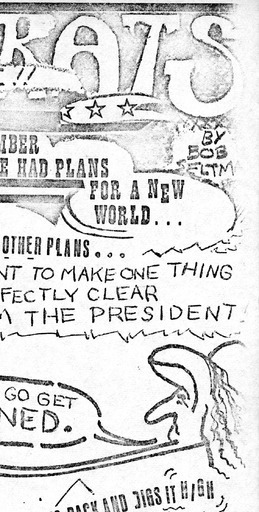 RATS
!!
BY
BOB
MBER
E HAD PLANS
FOR A NEW
WORLD...
OTHER PLANS...
NT TO MAKE ONE THING
FECTLY CLEAR
M THE PRESIDENT
GO GET
NED.
BACK AND DIGS IT HIGH